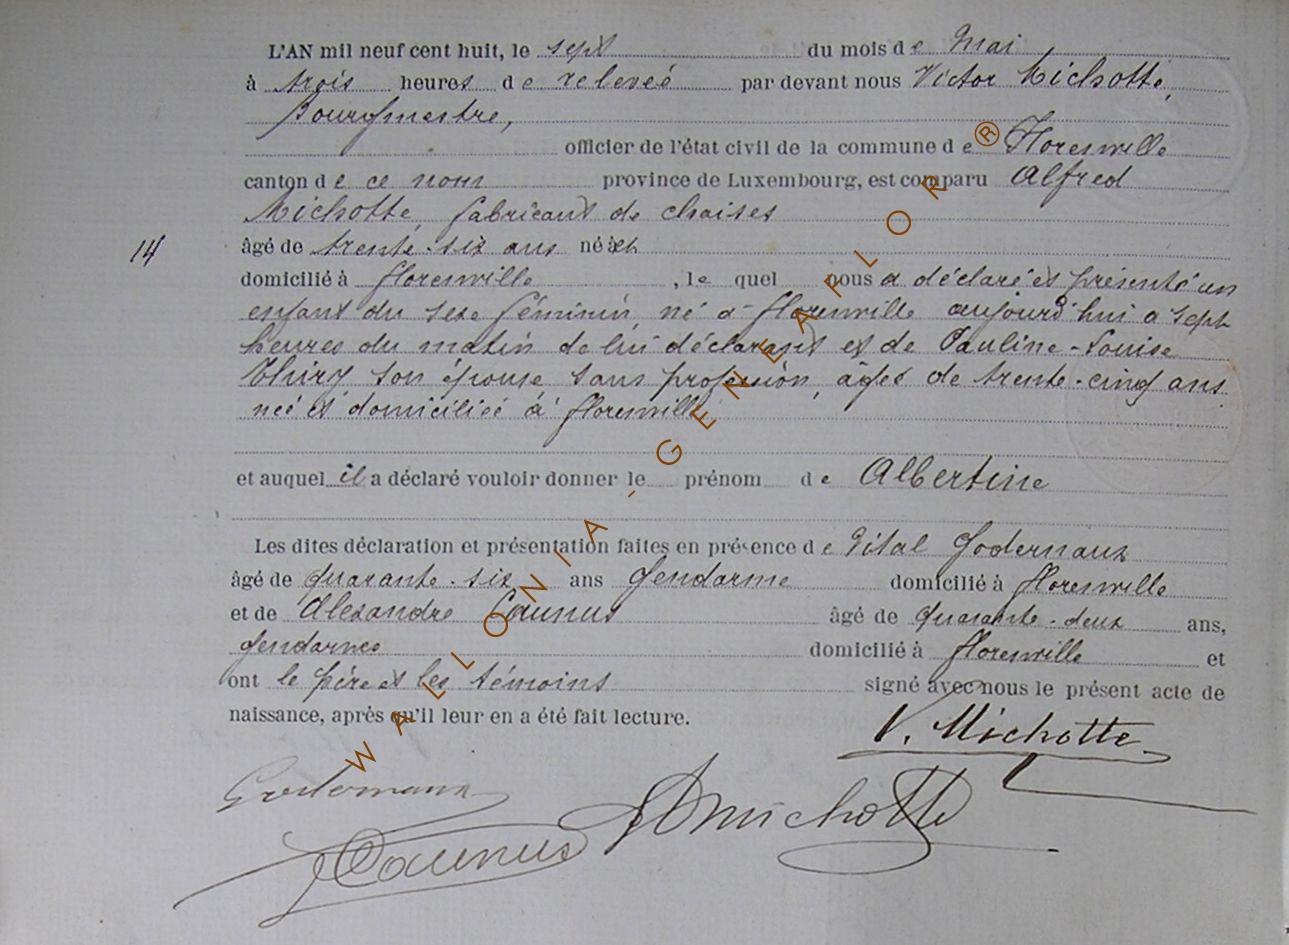 L'AN mil neuf cent huit, le sept du mois de Mai,
à trois heures de relevée par devant nous Victor Michotte,
Bourgmestre,
officier de l'état civil de la commune de Florenville
canton de ce nom province de Luxembourg, est comparu Alfred
Michotte, fabricant de chaises
14
âgé de trente-six ans né à et
domicilié à Florenville, lequel nous a déclaré et présenté un
enfant du sexe féminin, né à Florenville aujourd'hui a sept
heures du matin de lui déclarant et de Pauline-Louise
Thiry son épouse sans profession, âgée de trente-cinq ans
née et domiciliée à Florenville
et auquel il a déclaré vouloir donner le prénom de Albertine
Les dites déclaration et présentation faites en présence de Vital Godernaux
âgé de quarante-six ans Gendarme domicilié à Florenville
et de Alexandre Caunus âgé de quarante-deux ans,
gendarme domicilié à Florenville et
ont le père et les témoins signé avec nous le présent acte de
naissance, après qu'il leur en a été fait lecture.
V. Michotte
Godernaux
Caunus
A Michotte
WALLONIA - GENEAFLOR ®